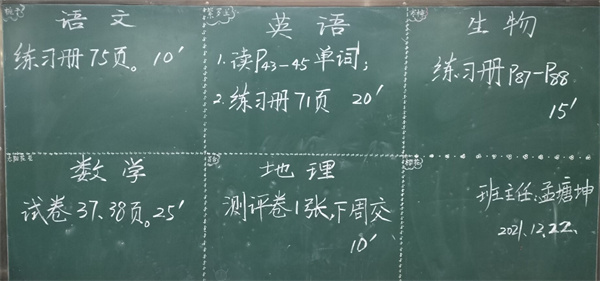 语文
练习册75页。10′
英语
1.读P43-45单词;
2.练习册71页 20′
生物
练习册P87-P88
15′
数学
试卷37、38页。25′
地理
测评卷1张,下周交
10′
班主任:孟塘坤
2021.12.22.